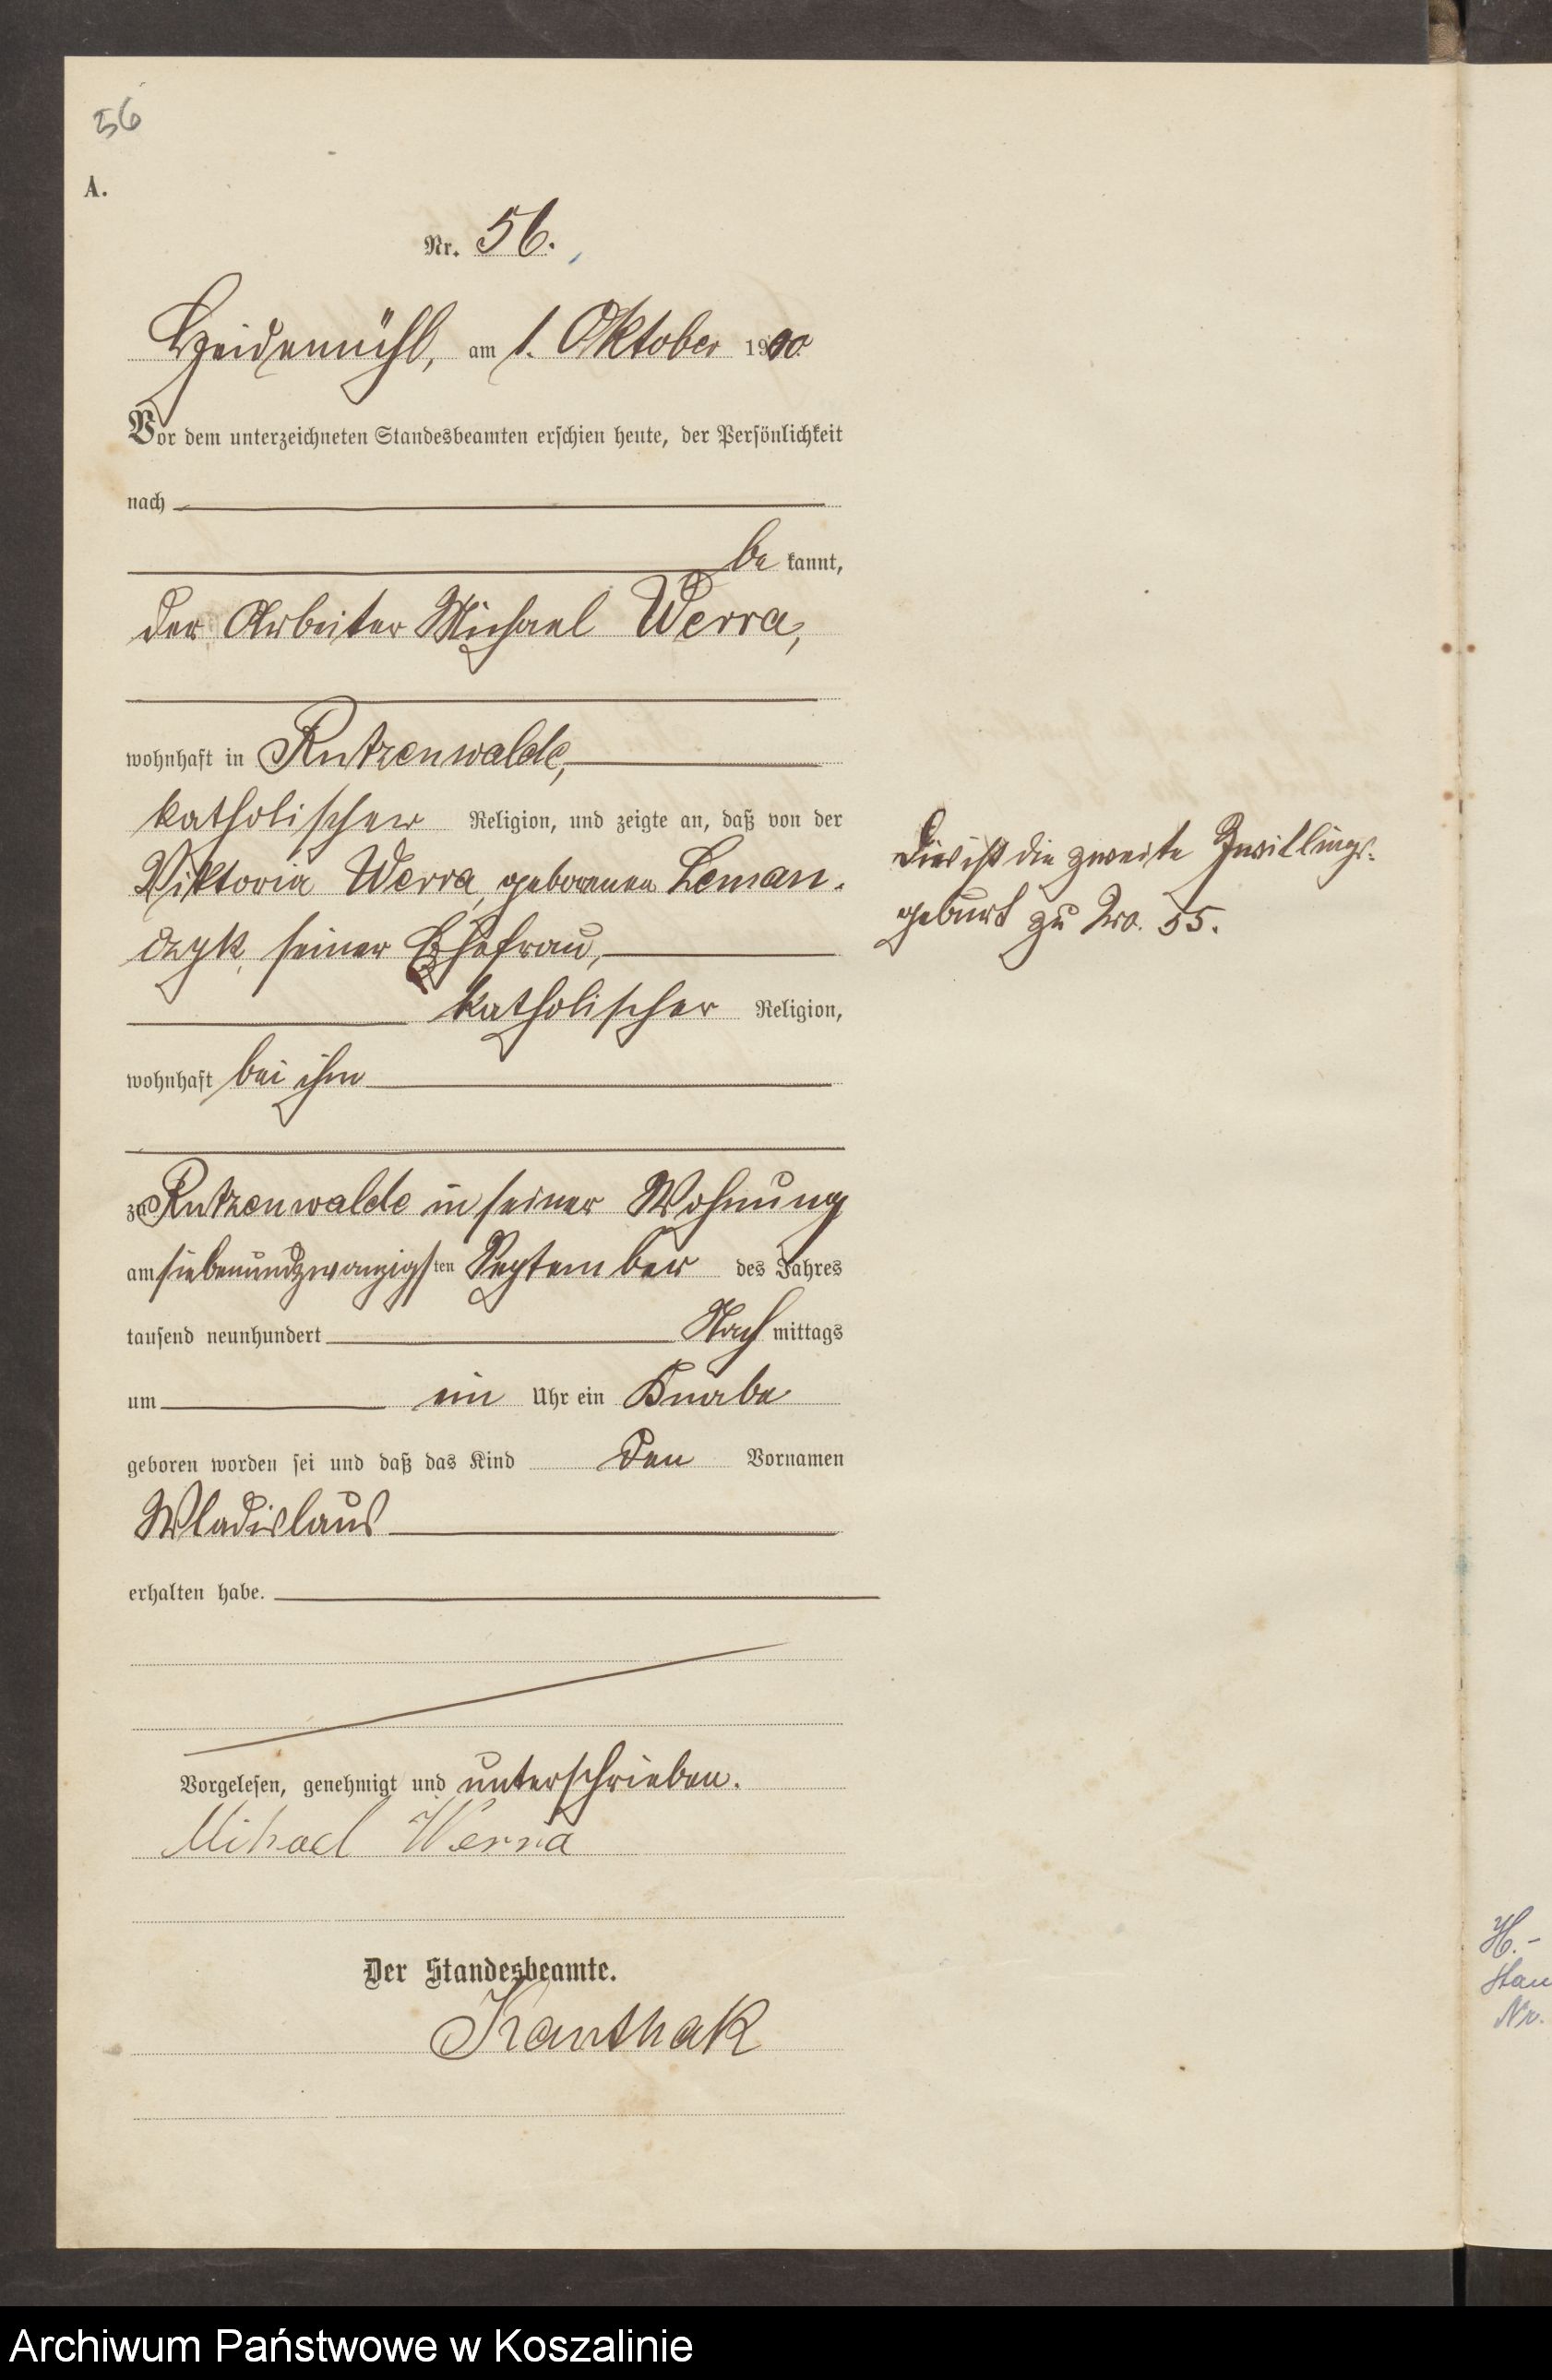 56
A.
Nr. 56.
Heidemühl, am 1. Oktober 1900.
Vor dem unterzeichneten Standesbeamten erschien heute, der Persönlichkeit
nach
be kannt,
der Arbeiter Michael Werra,
wohnhaft in Rutzenwalde,
katholischer Religion, und zeigte an, daß von der
Viktoria Werra, geborenen Leman-
czyk, seiner Ehefrau,
katholischer Religion,
wohnhaft bei ihm
zu Rutzenwalde in seiner Wohnung
am siebenundzwanzigsten September des Jahres
tausend neunhundert Nach mittags
um ein Uhr ein Knabe
geboren worden sei und daß das Kind den Vornamen
Wladislaus
erhalten habe.
Vorgelesen, genehmigt und unterschrieben.
Mihael Werra
Der Standesbeamte.
Kanthak
Dies ist die zweite Zwillings-
geburt zu No. 55.
H.-
Nr.
Archiwum Państwowe w Koszalinie